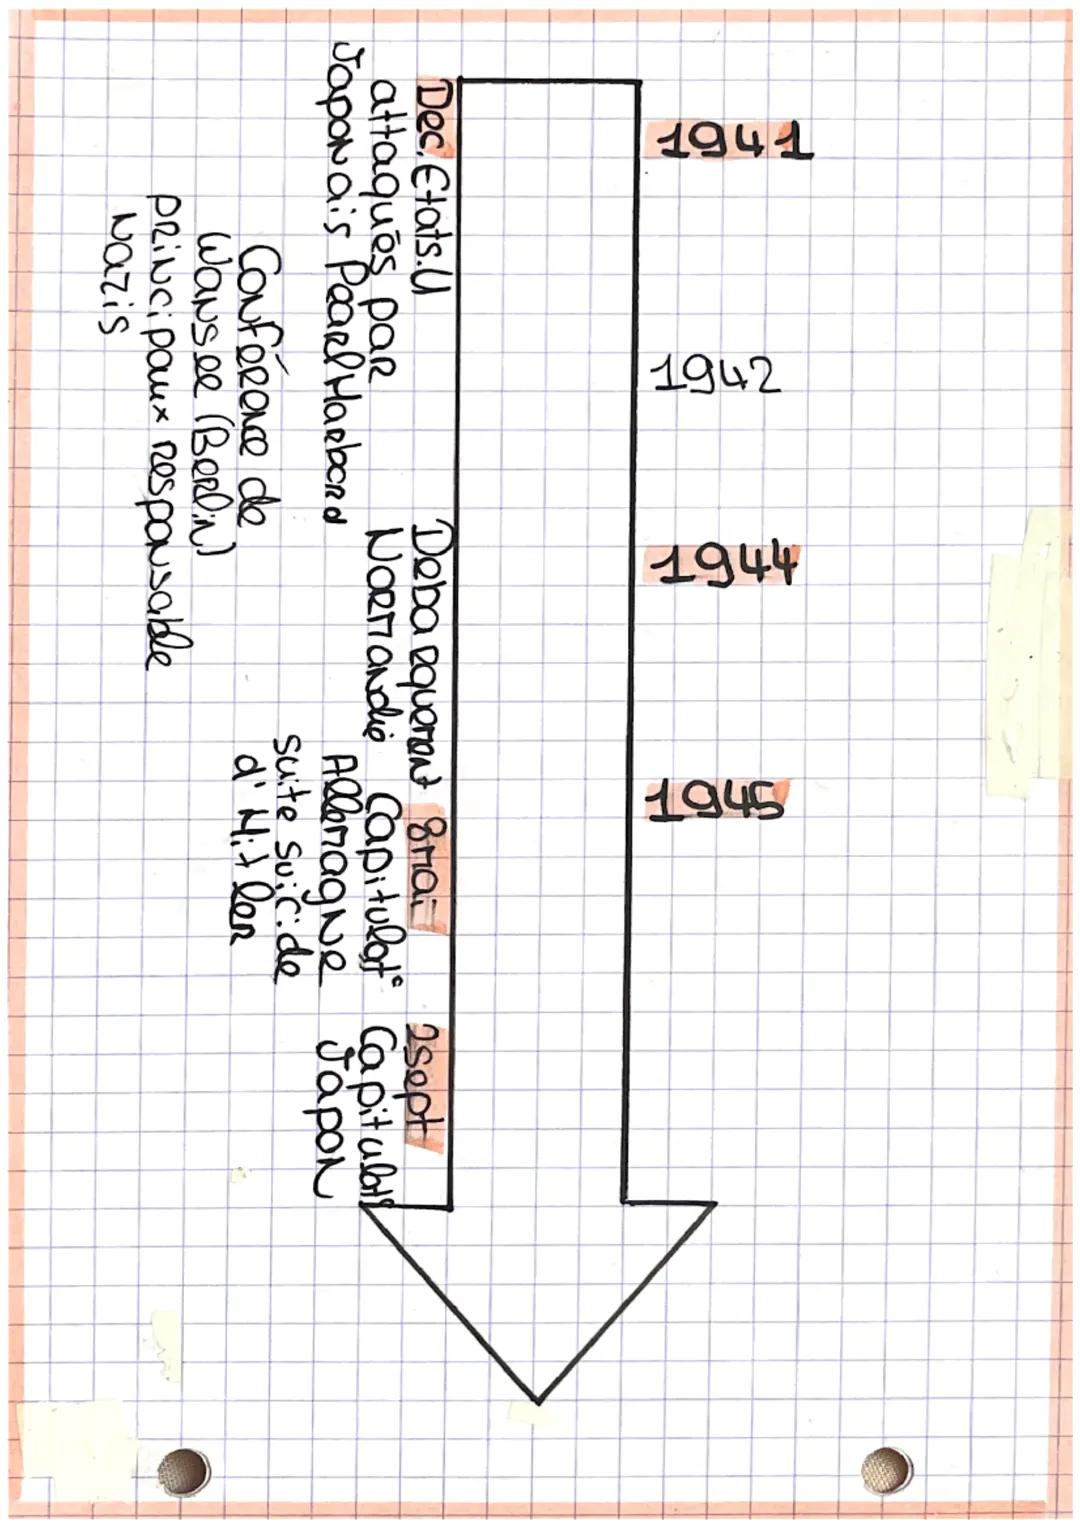 1941
1942
1944
1945
Dec. Etats.U
attaqués par
Japonais Pearl Harbord
Conférence de
Wansee (Berlin)
principaux responsable
Nazis
Debarquement
Normandie
8 mai
Capitulat°
Allemagne
suite suicide
d'Hitler
2 sept
Capitulat°
Japon